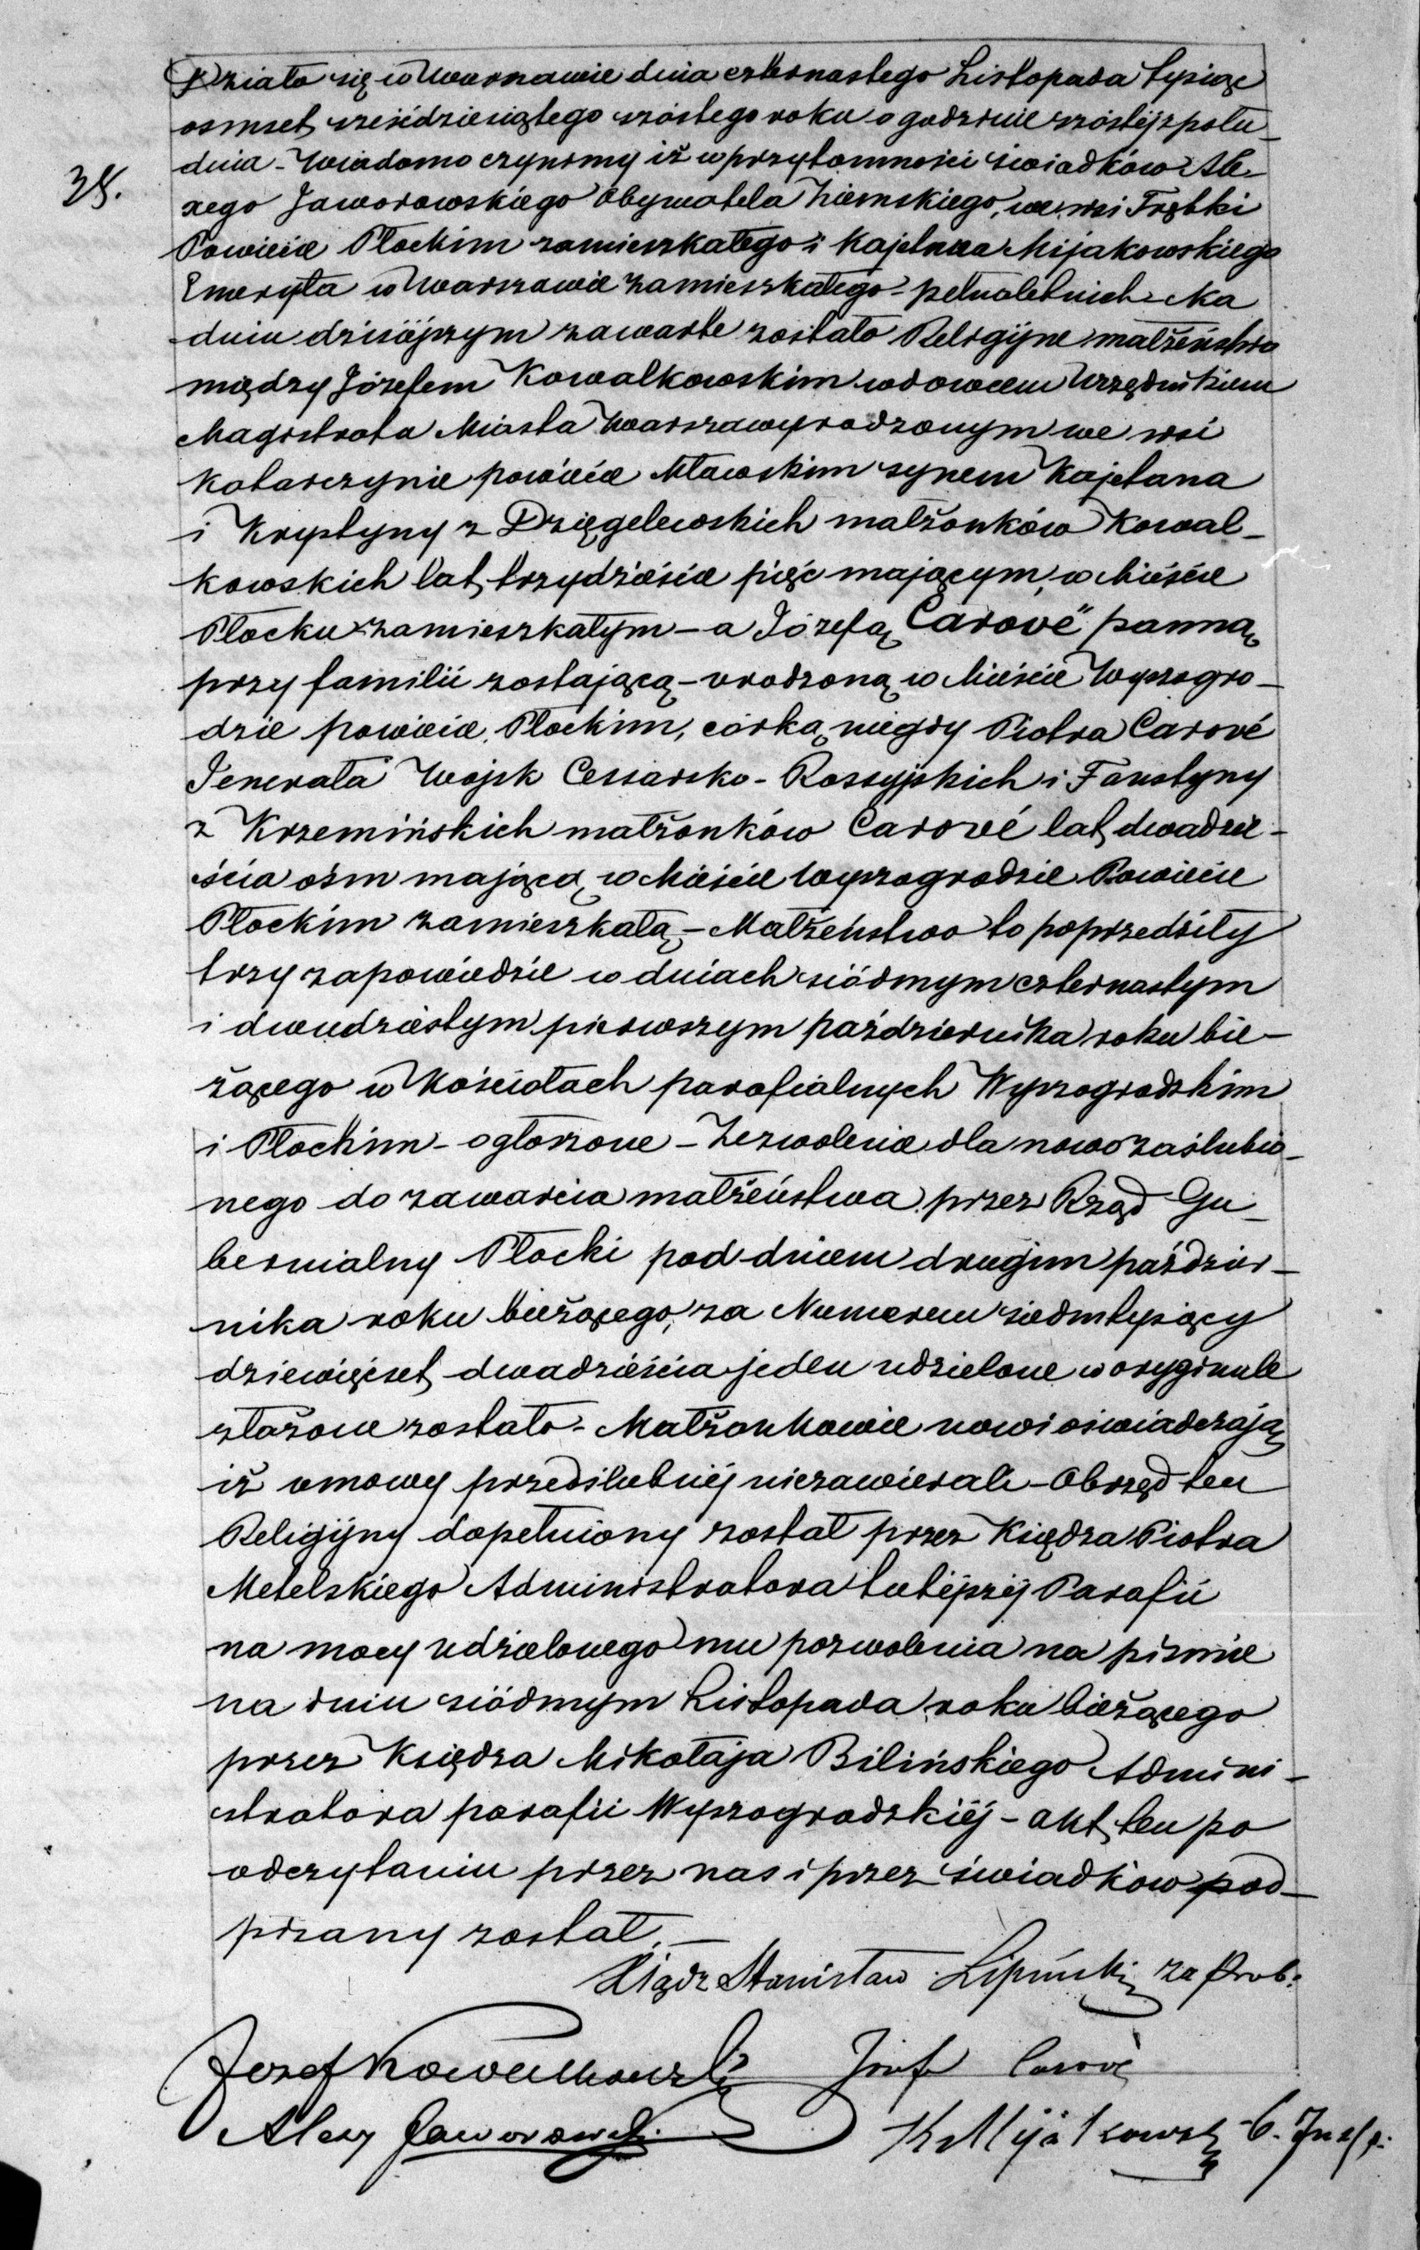 Działo się w Warszawie dnia czternastego Listopada tysiąc
osmset sześćdziesiątego szóstego roku o godzinie szóstéj z połu-
38.
dnia - Wiadomo czynimy iż w przytomności świadków Ale-
xego Jaworowskiego Obywatela Ziemskiego, we wsi Trębki
Powiecie Płockim zamieszkałego i Kajetana Mijakowskiego
Emeryta w Warszawie zamieszkałego - pełnoletnich - Na
dniu dzisiéjszym zawarte zostało Religijne małżeństwo
między Józefem Kowalkowskim wdowcem Urzędnikiem
Magistratu Miasta Warszawy rodzonym we wsi
Kotarczynie powiecie Mławskim synem Kajetana
i Krystyny z Dzięgelewskich małżonków Kowal-
kowskich lat trzydzieście pięć mającym, w Mieście
Płocku zamieszkałym - a Józefą Carové" panną
przy familii zostającą - urodzoną w Mieście Wyszogro-
dzie powiecie Płockim, córką niegdy Piotra Carové
Jenerała Wojsk Cessarsko - Rossyjskich i Faustyny
z Krzemińskich małżonków Carové lat dwadzie-
ścia ośm mającą w Mieście Wyszogrodzie Powiecie
Płockim zamieszkałą - Małżeństwo to poprzedziły
trzy zapowiedzie w dniach siódmym czternastym
i dwudziestym pierwszym października roku bie-
żącego w Kościołach parafialnych Wyszogrodskim
i Płockim - ogłoszone - Zezwolenie dla nowozaślubio-
nego do zawarcia małżeństwa przez Rząd Gu-
bernialny Płocki pod dniem drugim paździer-
nika roku bieżącego, za Numerem siedmtysięcy
dziewięćset dwadzieścia jeden udzielone w oryginale
złożone zostało - Małżonkowie nowi oświadczają
iż umowy przedślubnéj niezawierali - Obrzęd ten
Religijny dopełniony został przez Księdza Piotra
Metelskiego Administratora tutéjszéj Parafii
na mocy udzielonego mu pozwolenia na piśmie
na dniu siódmym Listopada roku bieżącego
przez Księdza Mikołaja Bilińskiego Admini-
stratora parafii Wyszogrodzkiéj - akt ten po
odczytaniu przez nas i przez świadków pod-
pisany został. -
Xiądz Stanisław Lipiński za Prob:
Jozef Kowalkowski Józefa Carové
Alexy Jaworowski K Mijakowski